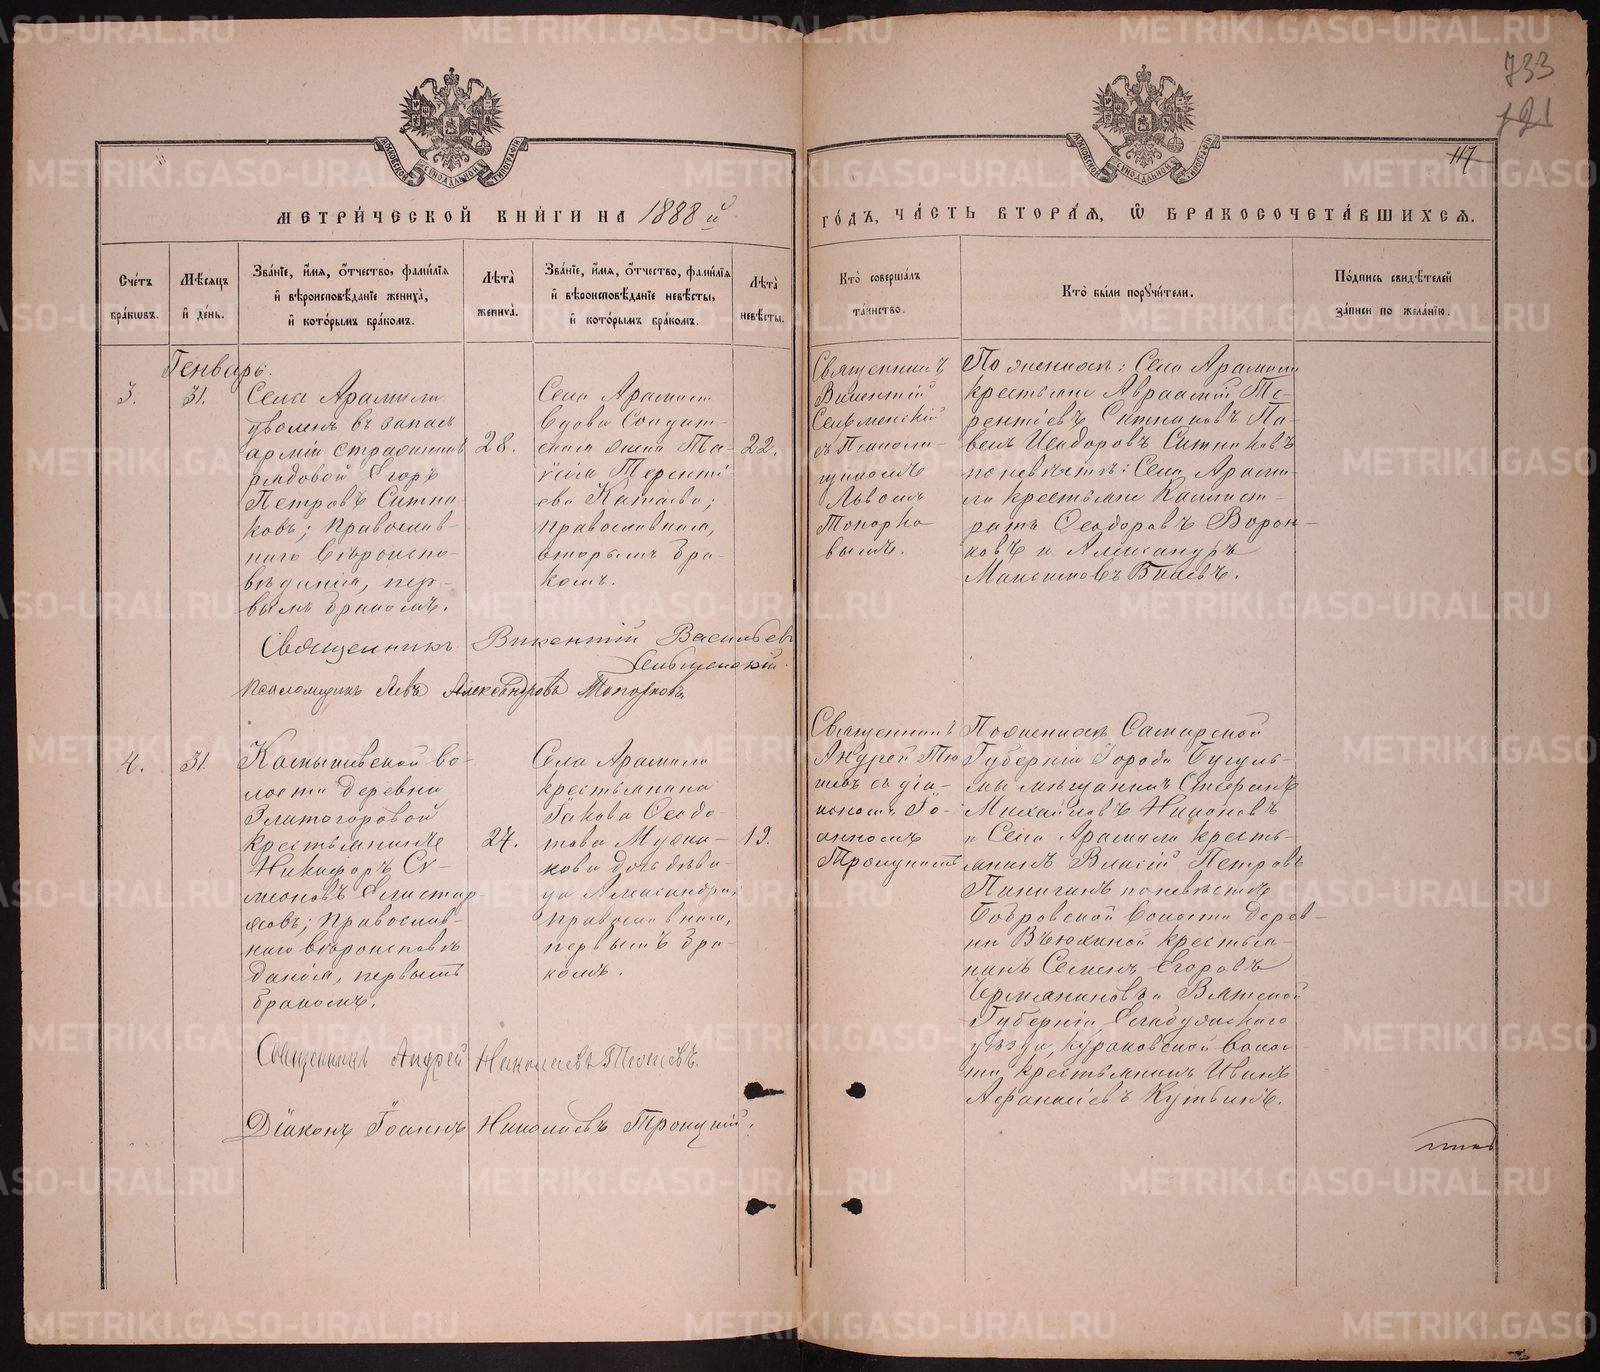 733
121
117
МЕТРИ́ЧЕСКОЙ КНИ́ГИ НА 1888 й
ГО́ДЪ, ЧА́СТЬ ВТОРА́Я, Ѽ БРАКОСОЧЕТА́ВШИХСЯ.
Сче́тъ бра́ковъ.
Мѣ́сяцъ и҆ де́нь.
Зва́нїе, и҆́мя, ѻ҆́тчество, фами́лїя
и҆ вѣроисповѣ́данїе жениха̀,
и҆ кото́рымъ бра́комъ.
Лѣта̀ жениха̀.
Зва́нїе, и҆́мя, ѻ҆́тчество, фами́лїя
и҆ вѣроисповѣ́данїе невѣ́сты,
и҆ кото́рымъ бра́комъ.
Лѣта̀ невѣ́сты.
Кто̀ соверша́лъ
та́инство.
Кто̀ бы́ли порꙋчи́тели.
По́дпись свидѣ́телей
за́писи по жела́нїю.
Генварь.
3.
31.
Села Арамили
уволенъ въ запасъ
арміи
рядовой Егоръ
Петровъ Ситни-
ковъ; православ-
наго вѣроиспо-
вѣданія, пер-
вымъ бракомъ.
28.
Села Арамили
вдова Солдат-
ская жена Та-
исія Терентi-
ева Катаева;
православная,
вторымъ бра-
комъ.
22.
Священникъ
Викентій
Сельменскій
съ Псалом-
щикомъ
Львомъ
Топорко
вымъ.
По женихѣ: Села Арамили
крестьяне Авраамій Те-
рентіевъ Ситниковъ Па-
велъ Исидоровъ Ситниковъ
по невѣстѣ: Села Арами-
ли крестьяне Каллист-
ратъ Ѳеодоровъ Ворон-
ковъ и Александръ
Максимовъ
Священникъ Викентій Васильевъ
Сельменскій.
Псаломщикъ Левъ Александровъ Топорковъ.
4.
31.
Камышевской во-
лости деревни
Златогоровой
крестьянинъ
Никифоръ Си-
меоновъ Елистар-
овъ; Православ-
наго вѣроисповѣ
данія, первымъ
бракомъ.
27.
Села Арамили
крестьянина
Іакова Ѳеодо-
това
дочь дѣви-
ца Александра,
православная,
первымъ бра-
комъ.
19.
Священникъ
Андрей Тю
шевъ съ діа-
кономъ Іо-
анномъ
Троицкимъ
По женихѣ Самарской
Губерніи Города Бугуль-
мы мѣщанинъ Стефанъ
Михайловъ Никоновъ
и Села Арамили кресть-
янинъ Власій Петровъ
Пинигинъ по невѣстѣ
Бобровской волости дерев-
ни Вьюхиной крестья-
нинъ Семенъ Егоровъ
Чермяниновъ и Вятской
Губерніи, Елабужскаго
уѣзда, Кураковской волос-
ти, крестьянинъ Иванъ
Аѳанасіевъ
Священникъ Андрей Николаевъ Тюшевъ.
Діаконъ Іоаннъ Николаевъ Троицкій.
METRIKI.GASO-URAL.RU